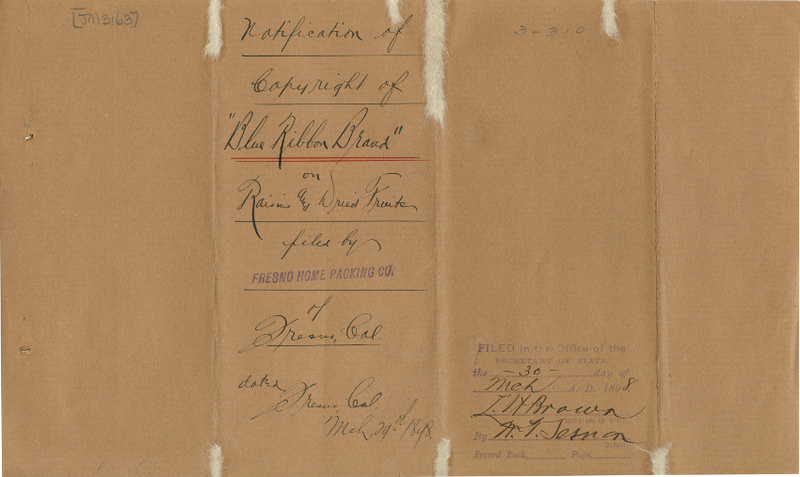 [TM3163]
Notification of
Copyright of
"Blue Ribbon Brand"
on
Raisins & Dried Fruits
filed by
FRESNO HOME PACKING CO.
of
Fresno, Cal.
dated
Fresno, Cal.
Mch. 29th/1898.
3-310
FILED in the Office of the
SECRETARY OF STATE
the -30- day of
Mch A. D. 1898
L. H. Brown
SECRETARY OF STATE
By
DEPUTY
Record Book, Page,